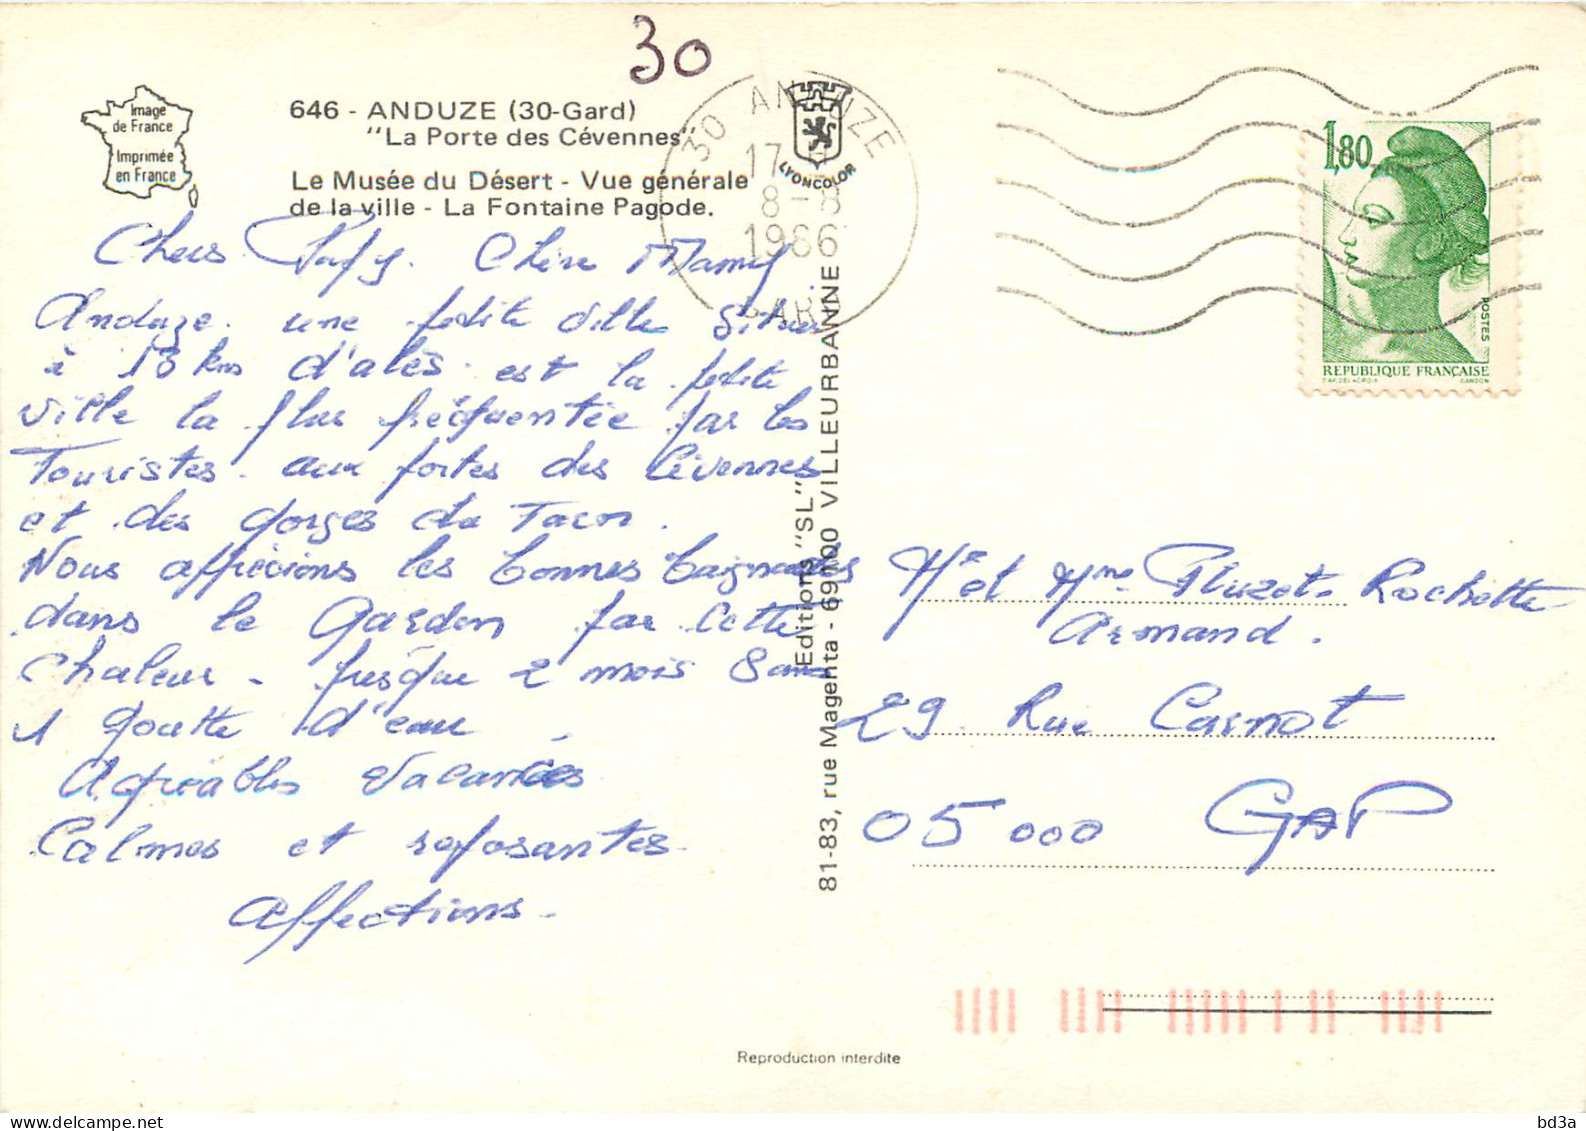 30
Image
de France
Imprimée
en France
646 - ANDUZE (30-Gard)
"La Porte des Cévennes"
Le Musée du Désert - Vue générale
de la ville - La Fontaine Pagode.
LYONCOLOR
30 ANDUZE
17
8-8
1986
GARD
1,80
POSTES
RÉPUBLIQUE FRANÇAISE
D'AP. DELACROIX
GANDON
Chers Papy. Chère Mamy
Anduze. une petite ville située
à 13 kms d'alès. est la petite
ville la plus fréquentée par les
Touristes. aux portes des Cévennes
et des gorges du Tarn.
Nous apprécions les bonnes baignades
dans le Gardon par cette
chaleur - presque 2 mois sans
1 goutte d'eau.
Agréables vacances
Calmes et reposantes.
Affections.
Editions "SL"
81-83, rue Magenta - 69100 VILLEURBANNE
Mr et Mme Pluzet. Rochette
Armand.
29. Rue Carnot
05 000 GAP
Reproduction interdite
bd3a